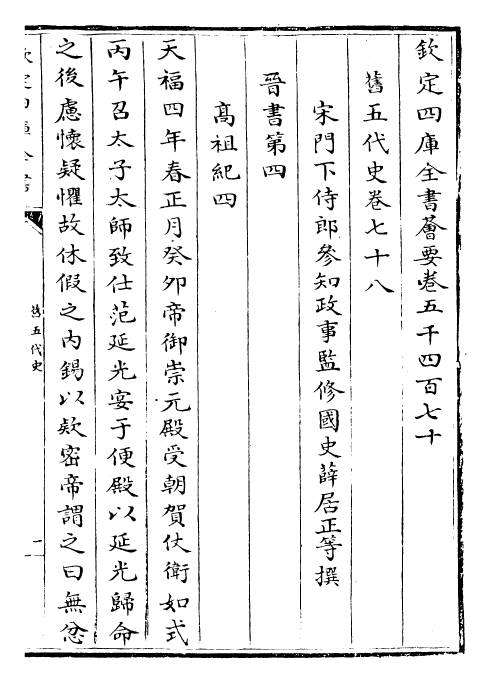 欽定四庫全書薈要卷五千四百七十
舊五代史卷七十八
宋門下侍郎參知政事監修國史薛居正等撰
晉書第四
高祖紀四
天福四年春正月癸卯帝御崇元殿受朝賀仗衛如式
丙午召太子太師致仕范延光宴于便殿以延光歸命
之後慮懷疑懼故休假之內錫以欵密帝謂之曰無忿
欽定四庫全書
舊五代史
一